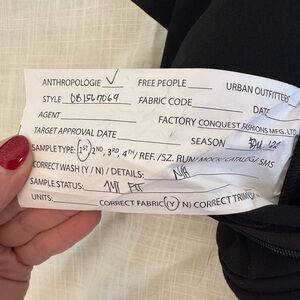 ANTHROPOLOGIE ✓ FREE PEOPLE URBAN OUTFITTERS
STYLE FABRIC CODE DATE
AGENT FACTORY CONQUEST FASHIONS MFG. LTD
TARGET APPROVAL DATE SEASON
SAMPLE TYPE: 1ST 2ND, 3RD, 4TH / REF. / SZ. RUN / MOCK / CATALOG / SMS
CORRECT WASH (Y / N) / DETAILS: N/A
SAMPLE STATUS: FIT
UNITS: CORRECT FABRIC (Y N) CORRECT TRIM